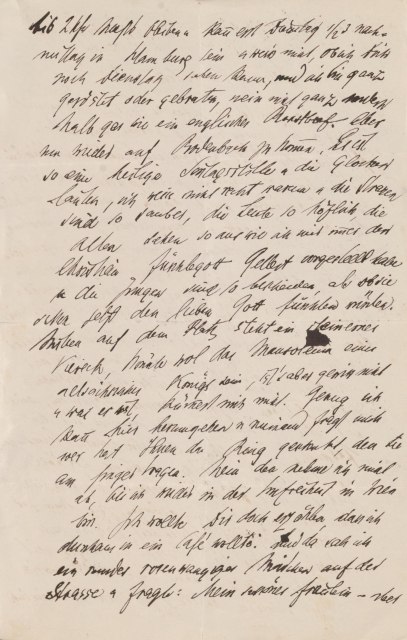 bis 2 Uhr Nachts bleiben u kan erst Dienstag 1/2 3 nach-
mittag in Hamburg sein u weis nicht, ob ich Dich
noch Dienstag sehen kann, und als bin ganz
geröstet oder gebraten, nein nicht ganz sondern
halb gar wie ein englisches Roastbeef. Aber
um wieder auf Bodenbach zu komen. Es ist
so eine heilige Sontagsstille u die Glocken
läuten, ich weis nicht recht warum u die Strassen
sind so sauber, die Leute so höflich, die
Alten sehen so aus wie ich mir imer den
Christian Fürchtegott Gellert vorgestellt habe
u die Jungen sind so bescheiden als ob sie
schon jetzt den lieben Gott fürchten würden.
Drüben auf dem Platz steht ein steinernes
Viereck, könnte wol das Mausoleum eines
Königs sein, ist's aber gewis nicht
u was es ist, kümert mich nicht. Genug ich
hier herumgehen u niemand frägt mich
wer hat Ihnen den Ring geraubt, den Sie
am Finger tragen. Nein den nehme ich nicht
ab, bis ich wieder in der in Wien
bin. Ich wollte Dir doch erzählen, dass ich
durchaus in ein Café wollte. Und da sah ich
ein rundes rosenwangiges Mädchen auf der
Strasse u fragte: Mein schönes Fräulein – aber